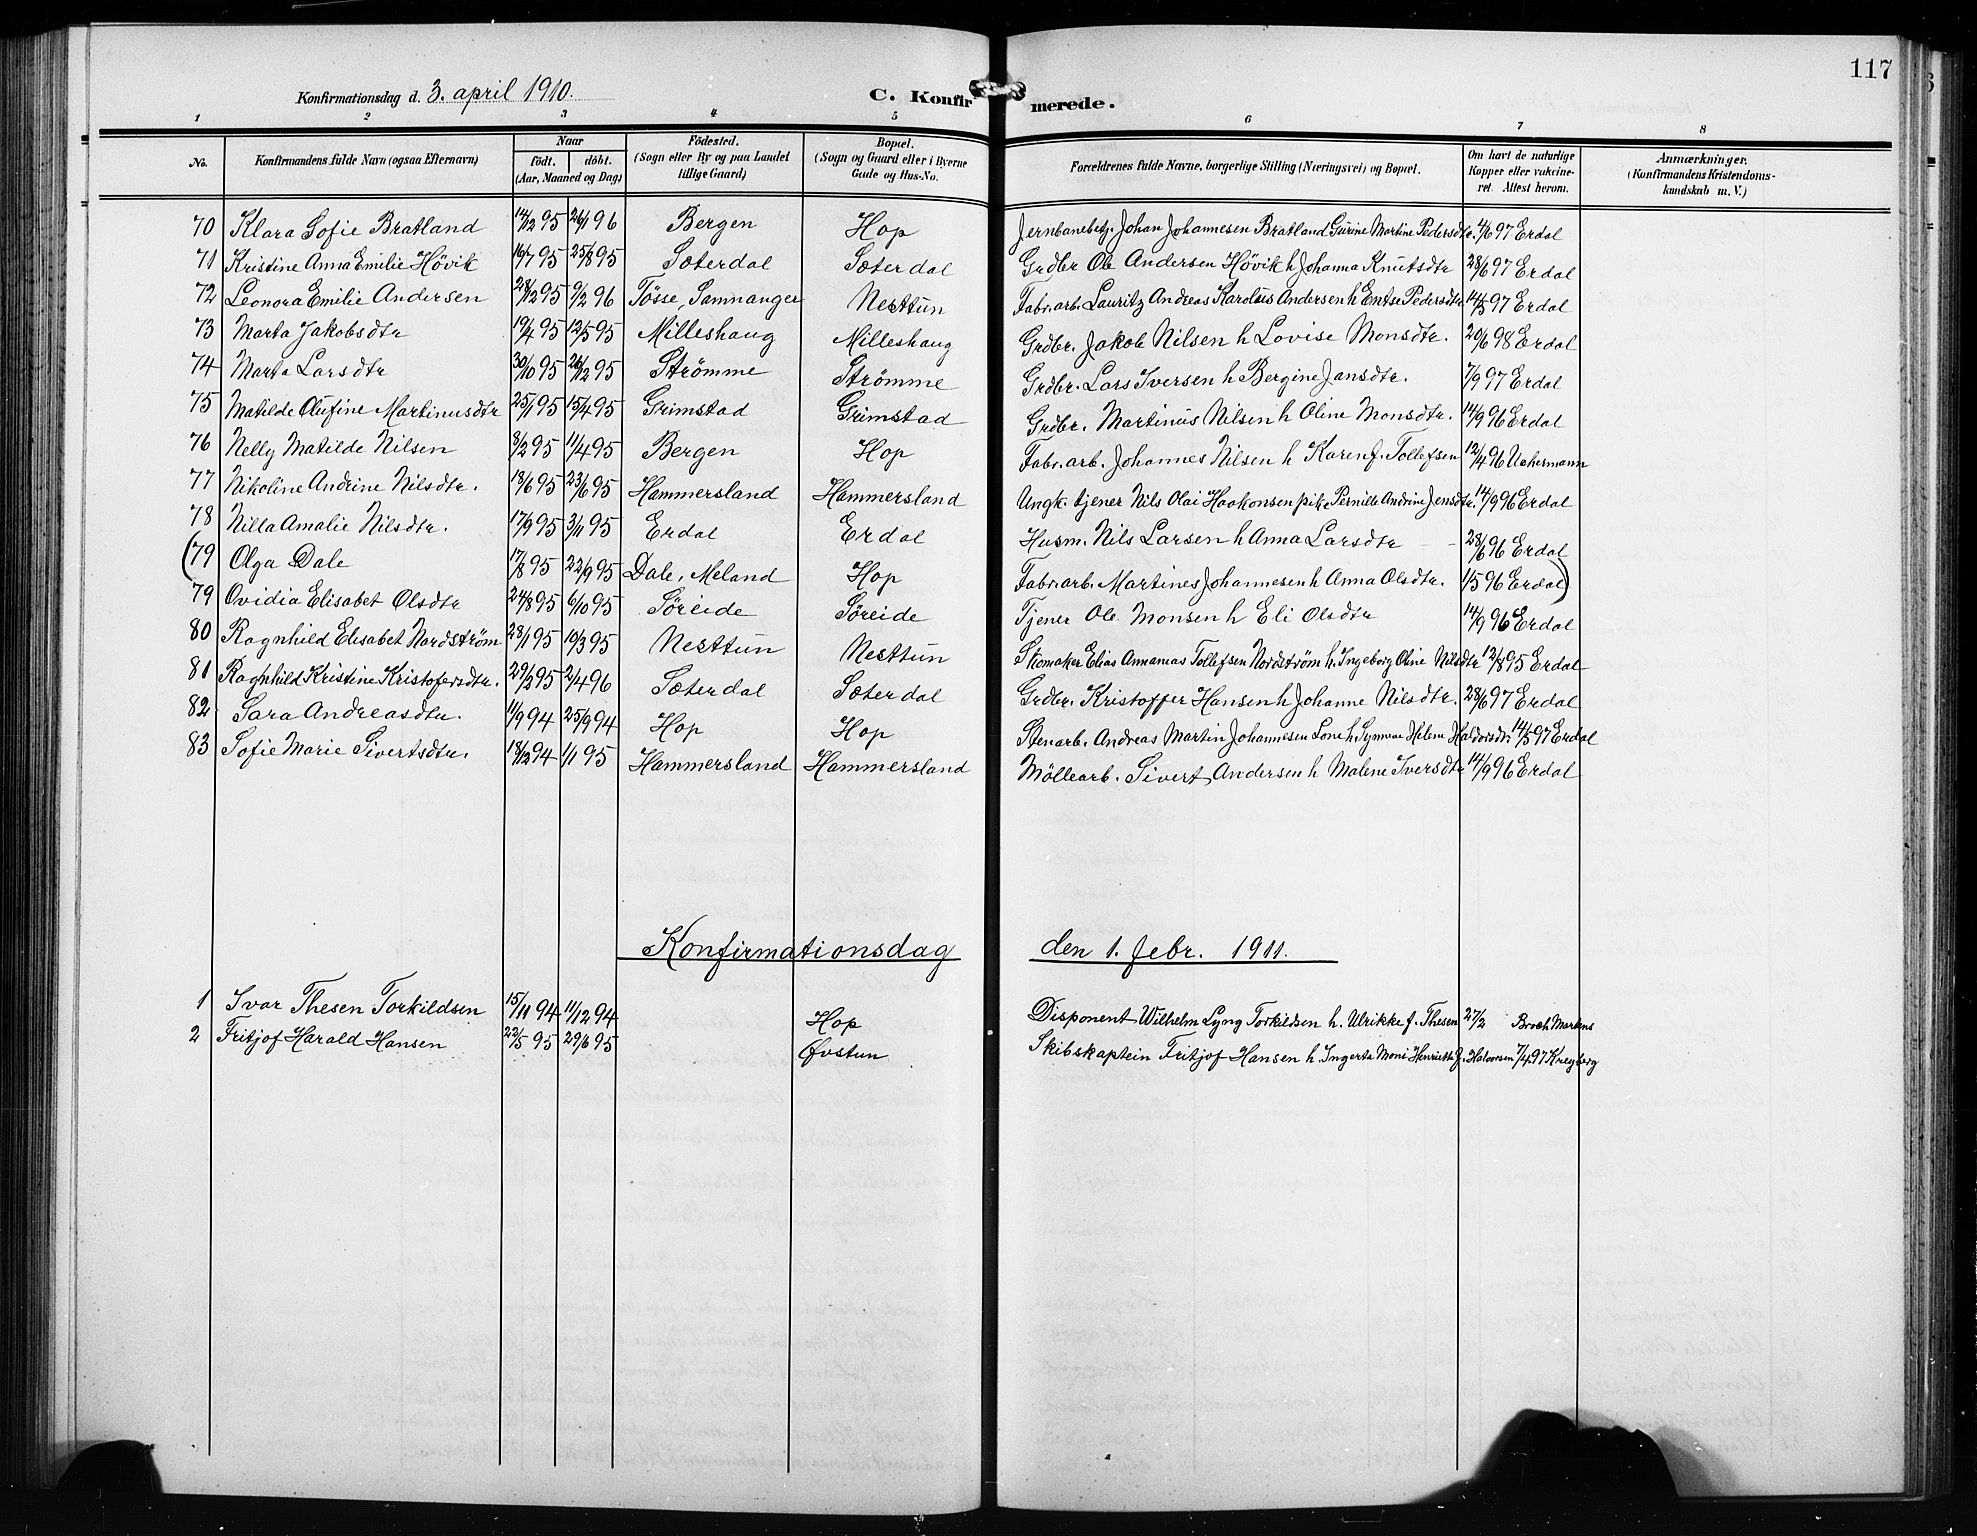 117
Konfirmationsdag d. 3. april 1910. C. Konfirmerede.
1 2 3 4 5 6 7 8
No. Konfirmandens fulde Navn (ogsaa Efternavn) Naar født. døbt. (Aar, Maaned og Dag) Födested. (Sogn eller By og paa Landet tillige Gaard) Bopæl. (Sogn og Gaard eller i Byerne Gade og Hus-No. Forældrenes fulde Navne, borgerlige Stilling (Næringsvei) og Bopæl. Om havt de naturlige Kopper eller vakcineret. Attest herom. Anmærkninger. (Konfirmandens Kristendomskundskab m. V.)
70 Klara Sofie Bratland 14/12 95 26/1 96 Bergen Hop Jernbanebetj. Johan Johannesen Bratland Gurine Martine Pedersdtr. 4/6 97 Erdal
71 Kristine Anna Emilie Hövik 16/7 95 25/8 95 Sæterdal Sæterdal Grdbr Ole Andersen Hövik h Johanna Knutsdtr 28/6 97 Erdal
72 Leonora Emilie Andersen 28/12 95 9/2 96 Tösse, Samnanger Nesttun Fabr.arb. Lauritz Andreas Karolius Andersen h Entse Pedersdtr 14/5 97 Erdal
73 Marta Jakobsdtr 19/4 95 12/5 95 Milleshaug Milleshaug Grdbr. Jakob Nilsen h Lovise Monsdtr. 20/6 98 Erdal
74 Marta Larsdtr 30/10 95 26/12 95 Strömme Strömme Grdbr. Lars Iversen h Bergine Jansdtr. 7/9 97 Erdal
75 Matilde Olufine Martinusdtr 25/1 95 15/4 95 Grimstad Grimstad Grdbr. Martinus Nilsen h Oline Monsdtr. 14/9 96 Erdal
76 Nelly Matilde Nilsen 8/2 95 11/4 95 Bergen Hop Fabr.arb. Johannes Nilsen h Karen f. Tollefsen 12/4 96 Uchermann
77 Nikoline Andrine Nilsdtr. 18/6 95 23/6 95 Hammersland Hammersland Ungk. tjener Nils Olai Haakonsen pike Pernille Andrine Jensdtr. 14/9 96 Erdal
78 Nilla Amalie Nilsdtr. 17/9 95 3/11 95 Erdal Erdal Husm. Nils Larsen h Anna Larsdtr - - 28/6 96 Erdal
(79 Olga Dale 17/8 95 22/9 95 Dale, Meland Hop Fabr.arb. Martines Johannesen h Anna Olsdtr. 1/5 96 Erdal)
79 Ovidia Elisabet Olsdtr 24/8 95 6/10 95 Söreide Söreide Tjener Ole Monsen h Eli Olsdtr 14/9 96 Erdal
80 Ragnhild Elisabet Nordström 28/1 95 10/3 95 Nesttun Nesttun Skomaker Elias Annanias Tollefsen Nordström h. Ingeborg Oline Nilsdtr 12/8 95 Erdal
81 Ragnhild Kristine Kristofersdtr. 29/12 95 2/4 96 Sæterdal Sæterdal Grdbr. Kristoffer Hansen h Johanne Nilsdtr. 28/6 97 Erdal
82 Sara Andreasdtr. 11/9 94 25/9 94 Hop Hop Stenarb. Andreas Martin Johannesen Lone h. Synnæ Helene Haldorsdtr. 14/5 97 Erdal
83 Sofie Marie Sivertsdtr. 18/12 94 1/1 95 Hammersland Hammersland Möllearb. Sivert Andersen h Malene Iversdtr 14/9 96 Erdal
Konfirmationsdag den 1. febr. 1911.
1 Ivar Thesen Torkildsen 15/11 94 11/12 94 Hop Disponent Wilhelm Lyng Torkildsen h. Ulrikke f. Thesen 27/2 Broch Martens
2 Fritjof Harald Hansen 22/5 95 29/6 95 Øvstun Skibskaptein Fritjof Hansen h Ingerta Moni Henriette f. Halvorsen 7/4 97 Kreyberg